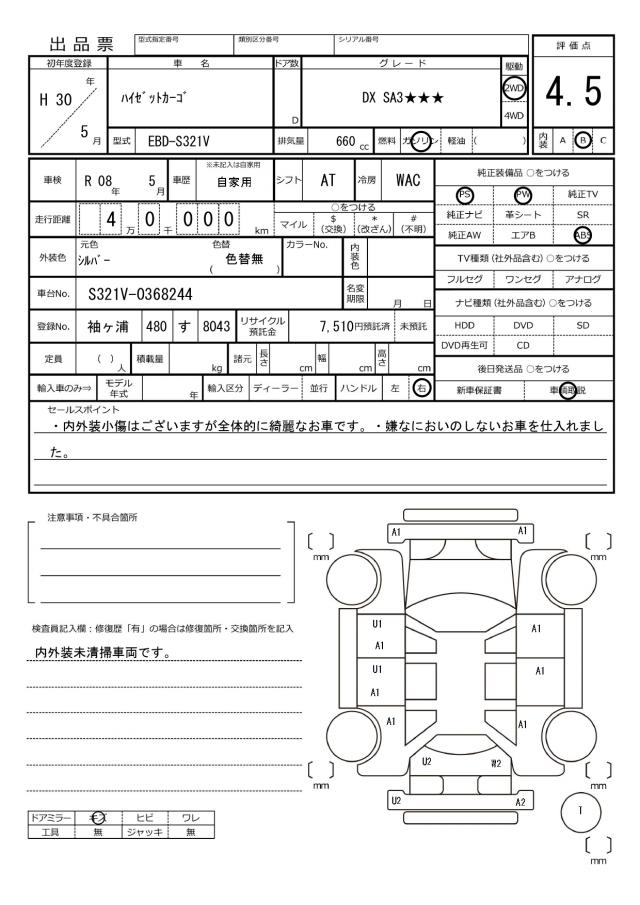 出品票
型式指定番号 類別区分番号 シリアル番号
評価点
4.5
内装 A B C
初年度登録 車名 ドア数 グレード 駆動
H 30 年 5 月
ﾊｲｾﾞｯﾄｶｰｺﾞ D DX SA3★★★ 2WD
4WD
型式 EBD-S321V 排気量 660 cc 燃料 ガソリン 軽油 ( )
車検 R 08 年 5 月 車歴 ※未記入は自家用 自家用 シフト AT 冷房 WAC
走行距離 4 0 万 0 0 0 千 km
○をつける
マイル $(交換) *(改ざん) #(不明)
外装色 元色 ｼﾙﾊﾞｰ 色替 ( 色替無 ) カラーNo. 内装色
車台No. S321V-0368244 名変期限 月 日
登録No. 袖ヶ浦 480 す 8043 リサイクル預託金 7,510円預託済 未預託
定員 ( )人 積載量 kg 諸元 長さ cm 幅 cm 高さ cm
輸入車のみ⇒ モデル年式 年 輸入区分 ディーラー 並行 ハンドル 左 右
純正装備品 ○をつける
PS PW 純正TV
純正ナビ 革シート SR
純正AW エアB ABS
TV種類 (社外品含む) ○をつける
フルセグ ワンセグ アナログ
ナビ種類 (社外品含む) ○をつける
HDD DVD SD
DVD再生可 CD
後日発送品 ○をつける
新車保証書 車輌取説
セールスポイント
・内外装小傷はございますが全体的に綺麗なお車です。・嫌なにおいのしないお車を仕入れまし
た。
注意事項・不具合箇所
検査員記入欄：修復歴「有」の場合は修復箇所・交換箇所を記入
内外装未清掃車両です。
ドアミラー キズ ヒビ ワレ
工具 無 ジャッキ 無
A1 A1
mm mm
U1 A1
U1 A1
A1
A1 A1
U2 W2
mm mm
U2 A2
T
mm